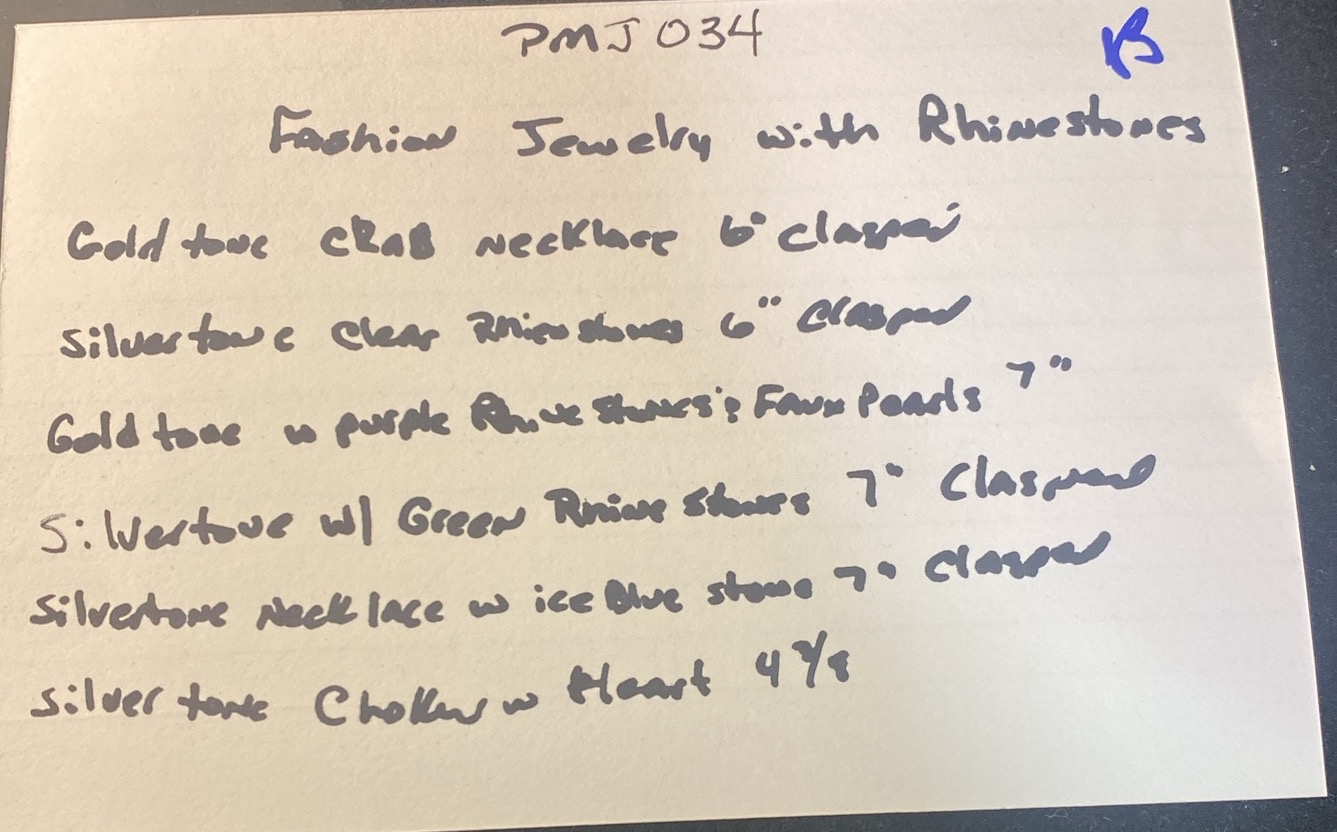 PMJ 034
B
Fashion Jewelry with Rhinestones
Gold tone CRAB Necklace 6" clasped
Silvertone Clear Rhinestones 6" Clasped
Gold tone w purple Rhinestones & Faux Pearls 7"
Silvertone w/ Green Rhinestones 7" Clasped
Silvertone Necklace w ice Blue stone 7" Clasped
Silver tone Choker w Heart 4